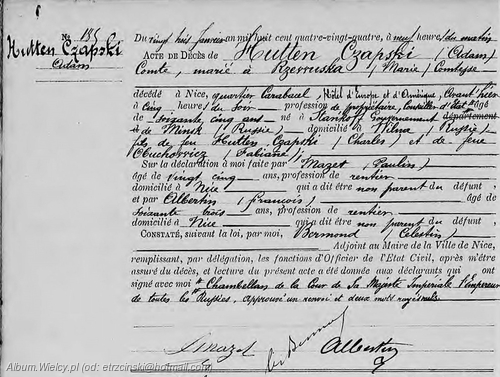 No 185
Hutten Czapski
Adam
Du vingt huit janvier an mil huit cent quatre-vingt-quatre, à neuf heure/du matin
ACTE DE DÉCÈS DE Hutten Czapski / Adam /
Comte, marié à Rzewuska / Marie / Comtesse
décédé à Nice, quartier Carabacel, Hôtel d'Europe et d'Amérique, Avant hier
à cinq heure/du soir profession de propriétaire, Conseiller d'état âgé
de soixante cinq ans né à Stankoff Gouvernement département
et de Minsk / Russie / domicilié à Wilna / Russie /
fils de feu Hutten Czapski / Charles / et de feue
Obuchowicz / Fabiana /;
Sur la déclaration à moi faite par Mazet / Paulin /
âgé de vingt cinq ans, profession de rentier
domicilié à Nice qui a dit être non parent du défunt,
et par Albertin / François / âgé de
soixante trois ans, profession de rentier
domicilié à Nice qui a dit être non parent du défunt.
CONSTATÉ, suivant la loi, par moi, Bermond / Célestin /
Adjoint au Maire de la Ville de Nice,
remplissant, par délégation, les fonctions d'Officier de l'État Civil, après m'être
assuré du décès, et lecture du présent acte a été donnée aux déclarants qui ont
signé avec moi Chambellan de la Cour de Sa Majesté Impériale l'Empereur
de toutes les Russies, approuvé un renvoi et deux mots rayés nuls
P Mazet
Cin Bermond
Albertin
Album.Wielcy.pl (od: etrzcinski@hotmail.com)